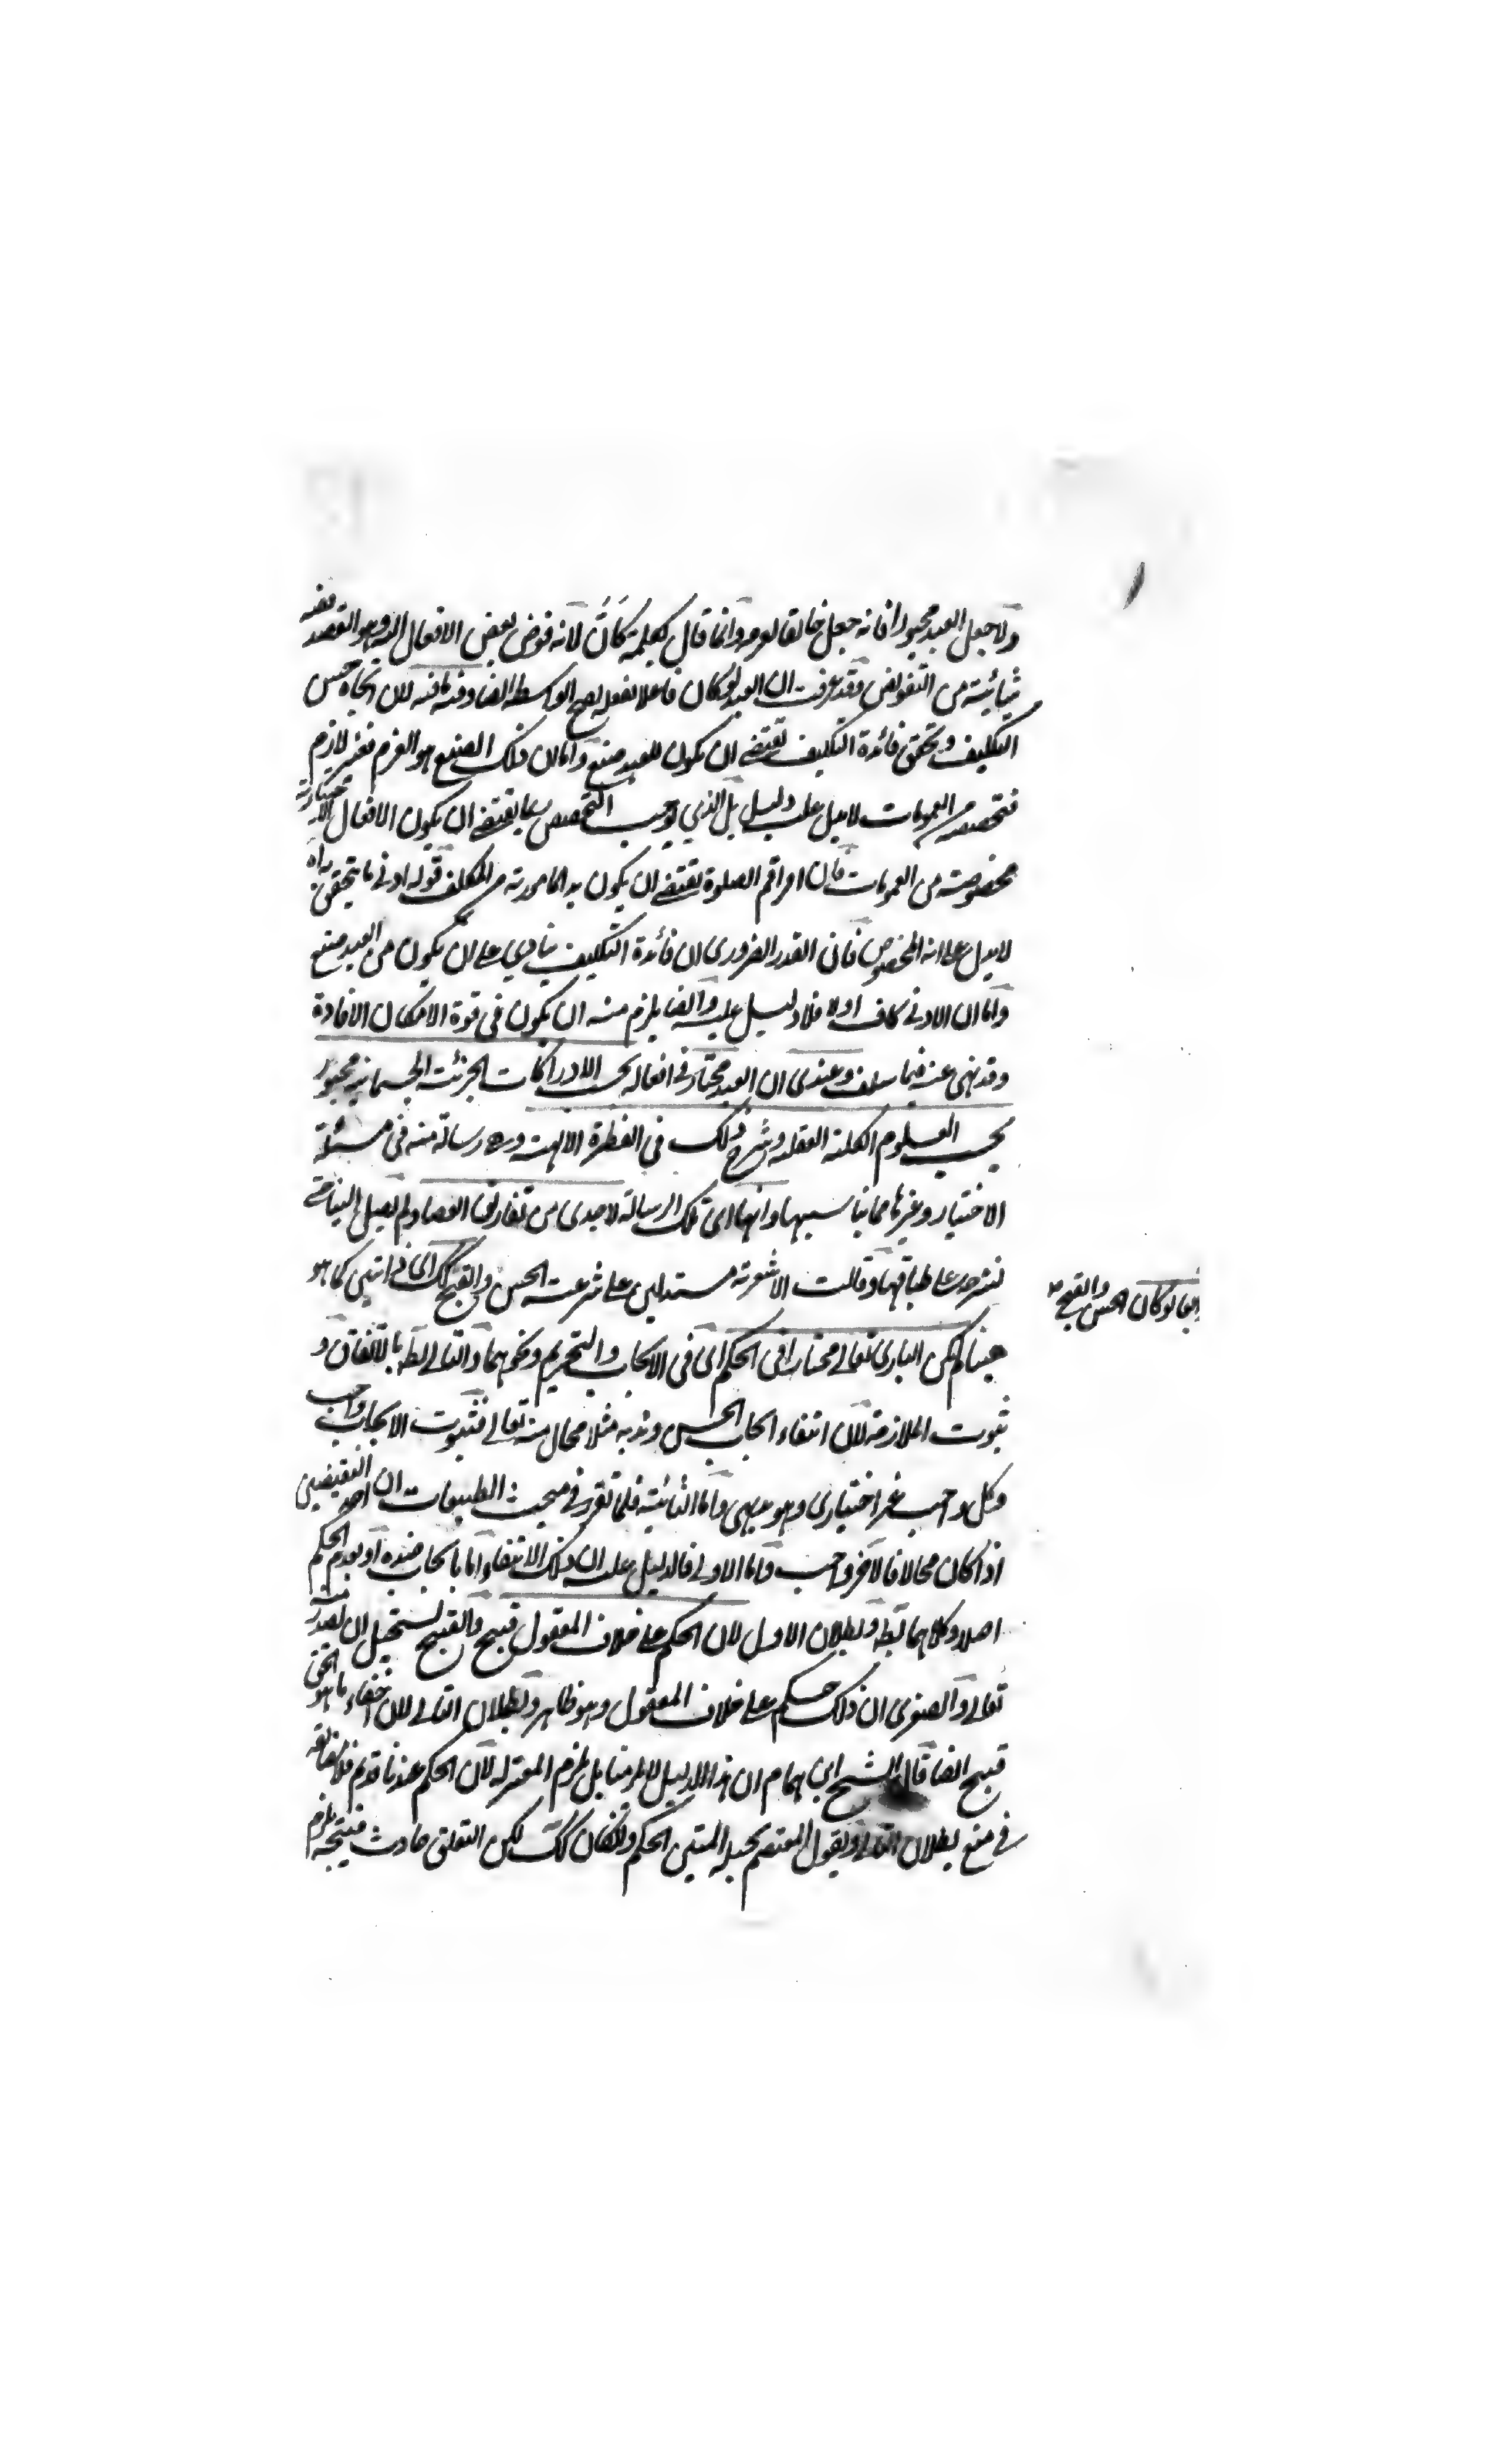 ولا جعل العبد مجبورا فانه جعل خالقا لعزمه وانما قال بكلمة كَاَنَّ لانه فوض بعض الافعال اليه وهو القصد ففيه
شائبته من التفويض وقد عرفت ان العبد لو كان فاعلا لفعله يصح الواسطة ايضا وفيه مافيه لان اتجاه حسن
التكليف وتحقق فائدة التكليف يقتضي ان يكون للعبد صنع واما ان ذلك الصنيع هو العزم فغير لازم
فتخصيصه من العمومات لا يدل عليه دليل بل الذي يوجب التخصيص ربما يقتضي ان يكون الافعال الاختيارية
مخصوصة من العمومات فان امر اقم الصلوة يقتضي ان يكون المامور به من المكلف قوله ادنى ما يتحقق به اه
لا يدل على انه المخصوص فان القدر الضروري ان فائدة التكليف ينادي على ان يكون من العبد صنع
واما ان الادنى كاف اولا فلا دليل عليه وايضا يلزم منه ان يكون في قوة الامكان الافادة
وقد نهى عنه فيما سلف وعندى ان العبد مختار في افعاله بحسب الادراكات الجزئية الجسمانية مجبور
بحسب العلوم الكلية العقلية وشرح ذلك في الفطرة الالهية وهى رسالة منه في مسئلة
الاختيار وغيرها مما يناسبها وانها اى تلك الرسالة لاجدى من تفاريق العصا ولم يصل الينا حتى
نشرحه على طباقها وقالت الاشعرية مستدلين على شرعية الحسن والقبح كذلك اى ذاتيين كما هو
ايضا لو كان الحسن والقبح
عندنا لم يكن البارى تعالى مختارا في الحكم اى في الايجاب والتحريم ونحوهما والتالي بط بالاتفاق و
ثبوت الملازمة لان انتفاء ايجاب الحسن وندبه مثلا محال منه تعالى فثبوت الايجاب واجب
وكل واجب غير اختيارى وهو بديهى واما الثانية فلما تقرر في مبحث الطبيعات ان احد النقيضين
اذا كان محالا فالآخر واجب واما الاولى فالدليل عليه ان ذلك الانتفاء اما بايجاب ضده او بعدم الحكم
اصلا وكلاهما بط وبطلان الاول لان الحكم على خلاف المعقول قبيح والقبيح يستحيل ان يصدر منه
تعالى والصغرى ان ذلك حكم على خلاف المعقول وهو ظاهر وبطلان التالي لان اخفاء ما هو الحق
قبيح ايضا قال الشيخ ابن همام ان هذا الدليل لا يلزمنا بل يلزم المعتزله لان الحكم عندنا قديم فلا مضايقة
في منع بطلان التالي ويقول المعتصم بحبله المتين الحكم وان كان كذلك لكن التعلق حادث فيتجه يلزم